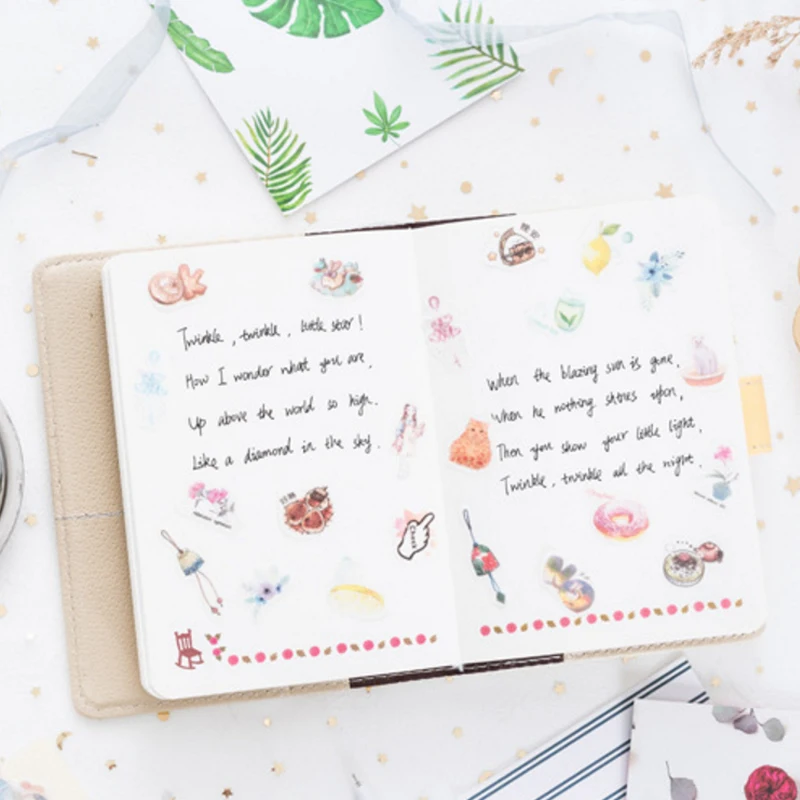 OK
Twinkle, twinkle, little star!
How I wonder what you are,
Up above the world so high.
Like a diamond in the sky.
When the blazing sun is gone,
When he nothing shines upon,
Then you show your little light,
Twinkle, twinkle all the night,